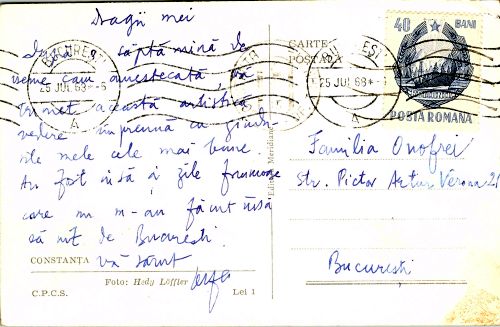 Dragii mei
După o săptămînă de
vreme cam amestecată, vă
trimet această artistică
vedere împreună cu gîndu-
rile mele cele mai bune.
Au fost însă și zile frumoase
care nu m-au făcut însă
să uit de București.
vă sărut
CONSTANȚA
Foto: Hedy Löffler
C.P.C.S.
Lei 1
Editura Meridiane
CARTE
POȘTALĂ
BUCUREȘTI
25 JUL 68 - 6
A
BUCUREȘTI
25 JUL 68 - 6
A
40 BANI
POSTA ROMANA
Familia Onofrei
Str. Pictor Artur Verona 21
București